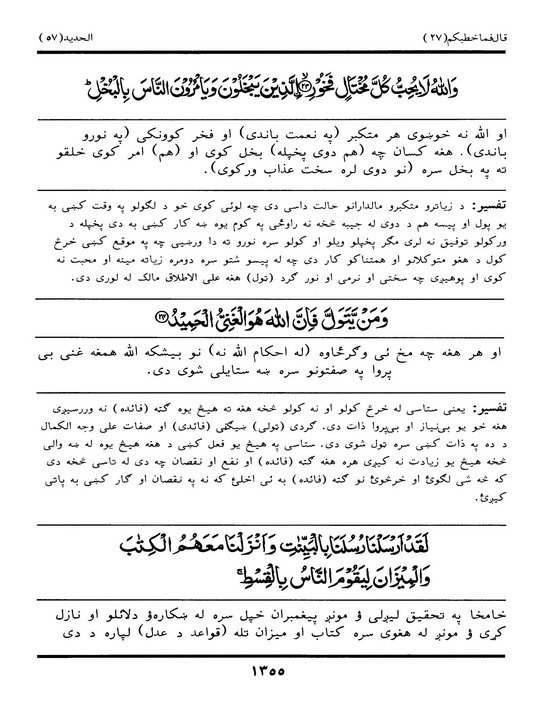 قال فما خطبكم (۲۷) الحديد (۵۷)
وَاللّٰهُ لَا يُحِبُّ كُلَّ مُخْتَالٍ فَخُوْرِۙ۝۲۳ الَّذِيْنَ يَبْخَلُوْنَ وَيَاْمُرُوْنَ النَّاسَ بِالْبُخْلِ ؕ
او الله نه خوښوی هر متکبر (په نعمت باندی) او فخر کوونکی (په نورو
باندی). هغه کسان چه (هم دوی پخپله) بخل کوی او (هم) امر کوی خلقو
ته په بخل سره (نو دوی لره سخت عذاب ورکوی).
تفسیر: د زیاترو متکبرو مالدارانو حالت داسی دی چه لوئی کوی خو د لگولو په وقت کښی به
یو پول او پیسه هم د دوی له جیبه څخه نه راوځی په کوم یوه ښه کار کښی به دی پخپله د
ورکولو توفیق نه لری مگر پخپلو ویلو او کولو سره نورو ته دا ورښیی چه په موقع کښی خرڅ
کول د هغو متوکلانو او همتناکو کار دی چه له پیسو شتو سره دومره زیاته مینه او محبت نه
کوی او پوهیږی چه سختی او نرمی او نور گرد (ټول) هغه علی الاطلاق مالک له لوری دی.
وَمَنْ يَّتَوَلَّ فَاِنَّ اللّٰهَ هُوَالْغَنِيُّ الْحَمِيْدُ۝۲۴
او هر هغه چه مخ ئی وگرځاوه (له احکام الله نه) نو بیشکه الله همغه غنی بی
پروا په صفتونو سره ښه ستایلی شوی دی.
تفسیر: یعنی ستاسی له خرڅ کولو او نه کولو څخه هغه ته هیڅ یوه گټه (فائده) نه وررسیږی
هغه خو یو بی‌نیاز او بی‌پروا ذات دی. گردی (ټولی) ښیگڼی (فائدی) او صفات علی وجه الکمال
د ده په ذات کښی سره ټول شوی دی. ستاسی په هیڅ یو فعل کښی د هغه هیڅ یوه له ښه والی
څخه هیڅ یو زیادت نه کیږی هره هغه گټه (فائده) او نفع او نقصان چه دی له تاسی څخه دی
که څه شی لگوئ او خرڅوئ نو گټه (فائده) به ئی اخلئ که نه په نقصان او گار کښی به پاتی
کیږئ.
لَقَدْ اَرْسَلْنَا رُسُلَنَا بِالْبَيِّنٰتِ وَاَنْزَلْنَا مَعَهُمُ الْكِتٰبَ
وَالْمِيْزَانَ لِيَقُوْمَ النَّاسُ بِالْقِسْطِ ۚ
خامخا په تحقیق لیږلی ؤ مونږ پیغمبران خپل سره له ښکاره‌ؤ دلائلو او نازل
کړی ؤ مونږ له هغوی سره کتاب او میزان تله (قواعد د عدل) لپاره د دی
۱۳۵۵